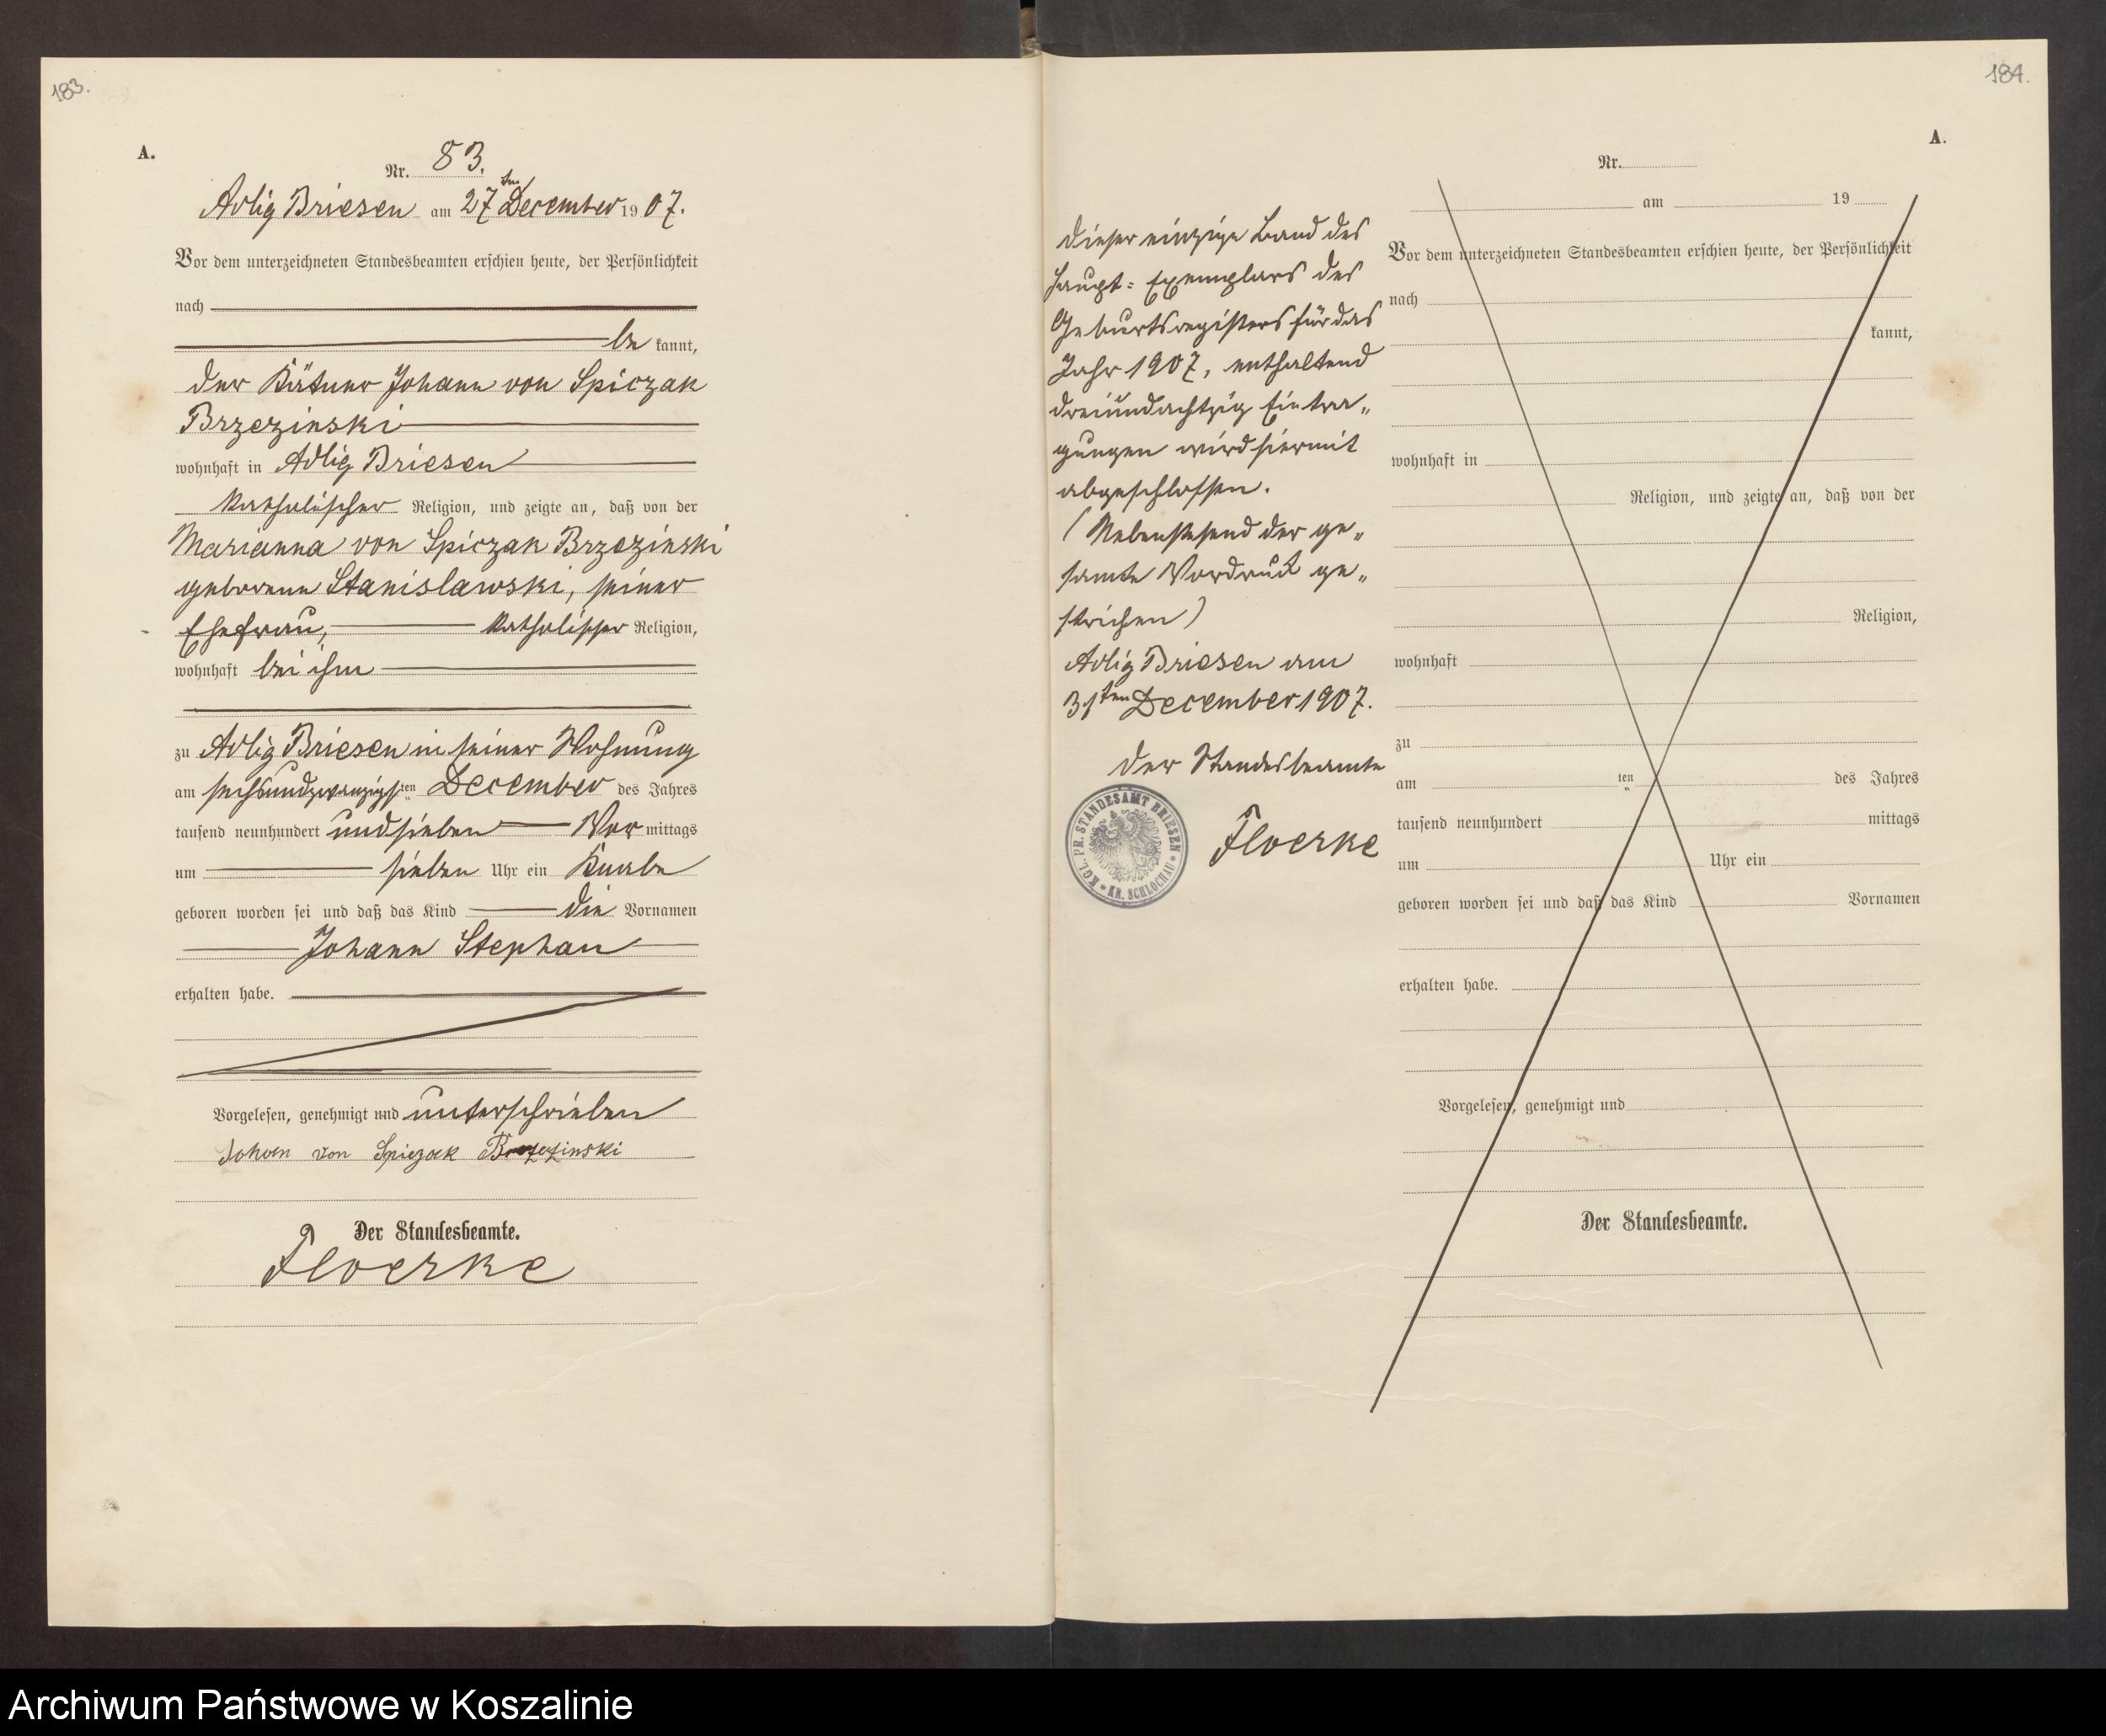 183.
A.
Nr. 83.
Adlig Briesen am 27ten December 1907.
Vor dem unterzeichneten Standesbeamten erschien heute, der Persönlichkeit
nach
be kannt,
der Kätner Johann von Spiczak
Brzezinski
wohnhaft in Adlig Briesen
katholischer Religion, und zeigte an, daß von der
Marianna von Spiczak Brzezinski
geborene Stanislawski, seiner
Ehefrau, katholischer Religion,
wohnhaft bei ihm
zu Adlig Briesen in seiner Wohnung
am sechsundzwanzigsten December des Jahres
tausend neunhundert und sieben Vor mittags
um sieben Uhr ein Knabe
geboren worden sei und daß das Kind die Vornamen
Johann Stephan
erhalten habe.
Vorgelesen, genehmigt und unterschrieben
Johan von Spiczak Brzezinski
Der Standesbeamte.
Floerke
184.
A.
Dieser einzige Band des
Haupt-Exemplars des
Geburtsregisters für das
Jahr 1907, enthaltend
dreiundachtzig Eintra„
gungen wird hiermit
abgeschlossen.
(Nebenstehend der ge„
samte Vordruck ge„
strichen)
Adlig Briesen am
31ten December 1907.
Der Standesbeamte
Floerke
KGL. PR. STANDESAMT BRIESEN
KR. SCHLOCHAU
Nr.
am 19
Vor dem unterzeichneten Standesbeamten erschien heute, der Persönlichkeit
nach
kannt,
wohnhaft in
Religion, und zeigte an, daß von der
Religion,
wohnhaft
zu
am ten des Jahres
tausend neunhundert mittags
um Uhr ein
geboren worden sei und daß das Kind Vornamen
erhalten habe.
Vorgelesen, genehmigt und
Der Standesbeamte.
Archiwum Państwowe w Koszalinie